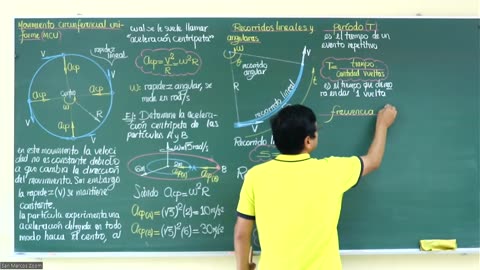 Movimiento circunferencial uni-
forme (MCU)
rapidez
lineal
V
acp
acp
acp
acp
Centro
ω
R
V
V
en este movimiento la veloci-
dad no es constante debido
a que cambia la dirección
del movimiento. Sin embargo
la rapidez (V) se mantiene
constante.
la partícula experimenta una
aceleración dirigida en todo
modo hacia el centro, al
cual se le suele llamar
"aceleración centrípeta"
acp = V²/R = ω²R
ω: rapidez angular, se
mide en rad/s
Ej: Determine la acelera-
ción centrípeta de las
partículas A y B.
ω=√5 rad/s
B
Sabido acp=ω²R
acp(A)=(√5)²(2)=10m/s²
acp(B)=(√5)²(6)=30m/s²
Recorridos lineales y
angulares
ω
V
recorrido
angular
R
recorrido lineal
t
V
Recorrido
Período (T)
es el tiempo de un
evento repetitivo
T= tiempo
Cantidad vueltas
es el tiempo que demo
ra en dar 1 vuelta
frecuencia
San Marcos Zoom